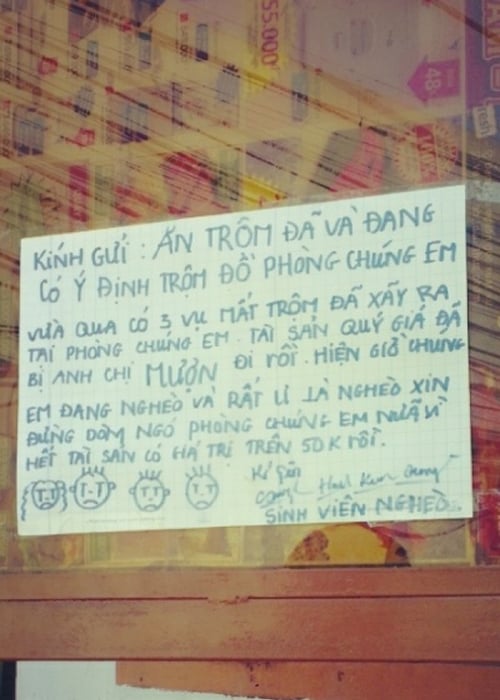 55.000
48
KÍNH GỬI : ĂN TRỘM ĐÃ VÀ ĐANG
CÓ Ý ĐỊNH TRỘM ĐỒ PHÒNG CHÚNG EM
VỪA QUA CÓ 3 VỤ MẤT TRỘM ĐÃ XẢY RA
TẠI PHÒNG CHÚNG EM. TÀI SẢN QUÝ GIÁ ĐÃ
BỊ ANH CHỊ MƯỢN ĐI RỒI. HIỆN GIỜ CHÚNG
EM ĐANG NGHÈO VÀ RẤT LÌ LÀ NGHÈO XIN
ĐỪNG DÒM NGÓ PHÒNG CHÚNG EM NỮA VÌ
HẾT TÀI SẢN CÓ GIÁ TRỊ TRÊN 50K RỒI.
SINH VIÊN NGHÈO